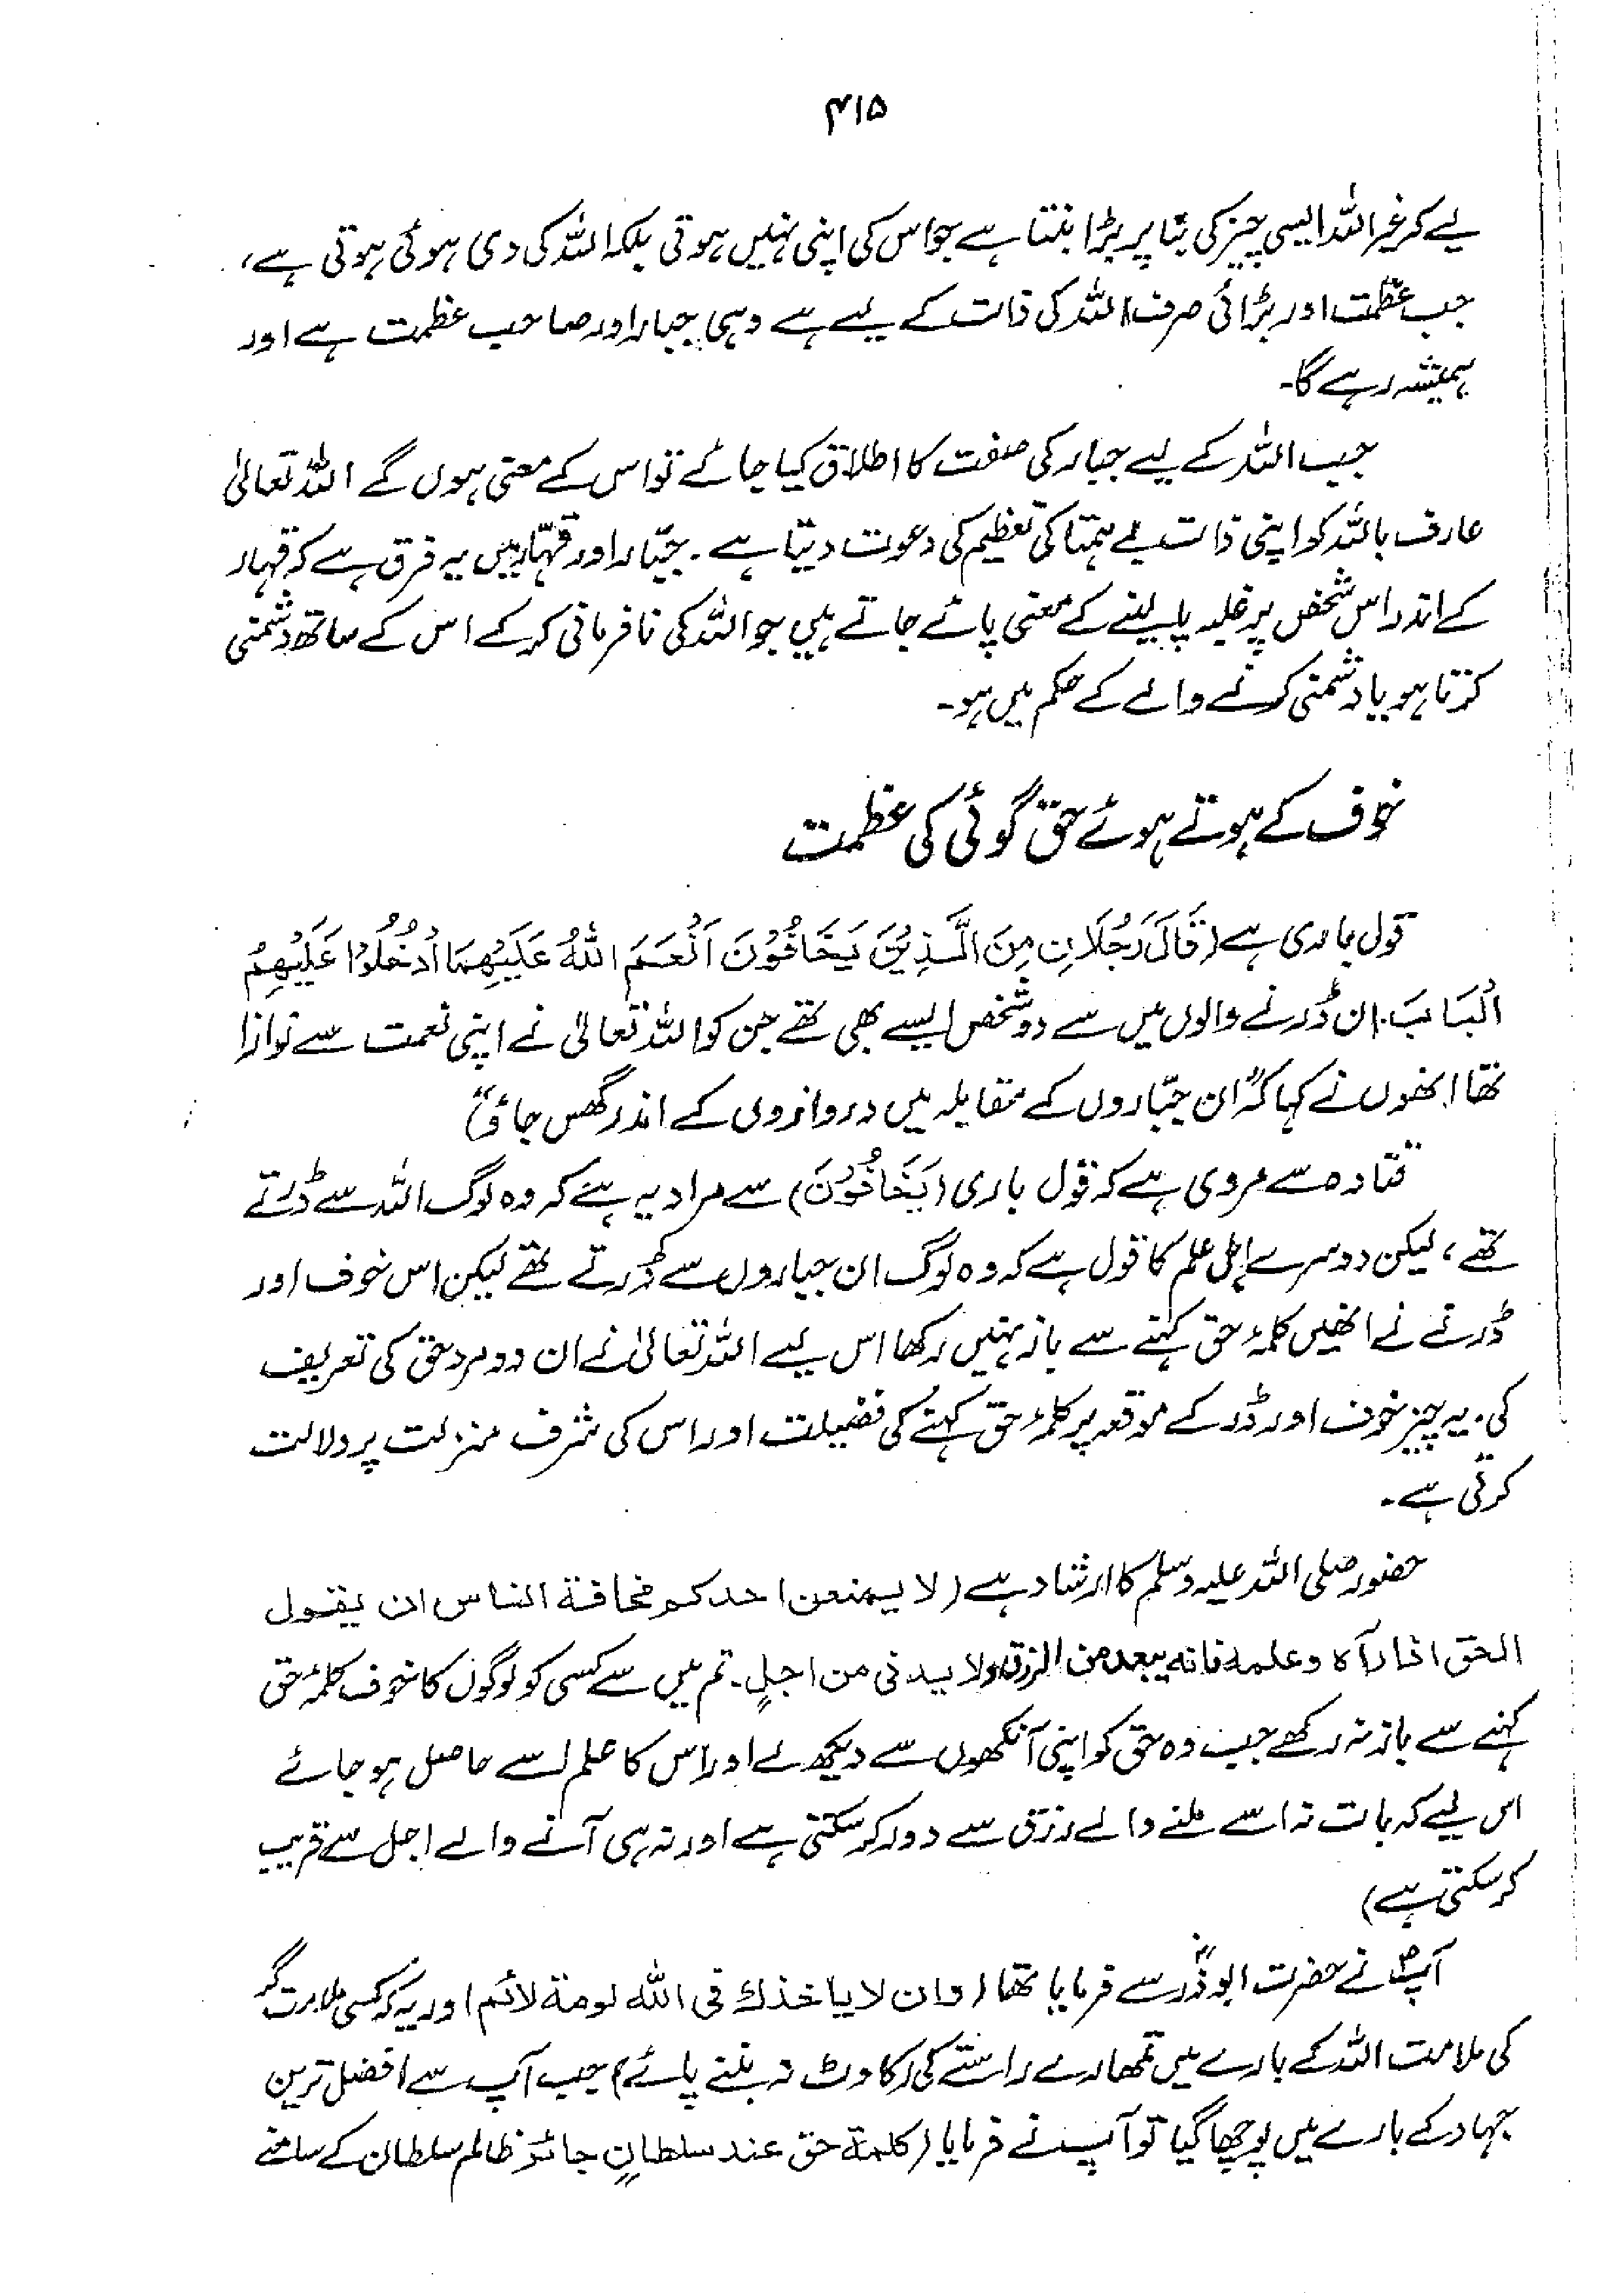 ۴۱۵
لیے کہ غیر اللہ ایسی چیز کی بنا پر بڑا بنتا ہے جو اس کی اپنی نہیں ہوتی بلکہ اللہ کی دی ہوئی ہوتی ہے،
جب عظمت اور بڑائی صرف اللہ کی ذات کے لیے ہے وہی جبار اور صاحب عظمت ہے اور
ہمیشہ رہے گا۔
جب اللہ کے لیے جبار کی صفت کا اطلاق کیا جائے تو اس کے معنی ہوں گے اللہ تعالیٰ
عارف باللہ کو اپنی ذات بے ہمتا کی تعظیم کی دعوت دیتا ہے۔ جبّار اور قہّار میں یہ فرق ہے کہ قہار
کے اندر اس شخص پر غلبہ پا لینے کے معنی پائے جاتے ہیں جو اللہ کی نافرمانی کر کے اس کے ساتھ دشمنی
کرتا ہو یا دشمنی کرنے والے کے حکم میں ہو۔
خوف کے ہوتے ہوئے حق گوئی کی عظمت
قول باری ہے (قَالَ رَجُلَانِ مِنَ الَّذِیْنَ یَخَافُوْنَ اَنْعَمَ اللّٰهُ عَلَیْهِمَا ادْخُلُوْا عَلَیْهِمُ
الْبَابَ۔ ان ڈرنے والوں میں سے دو شخص ایسے بھی تھے جن کو اللہ تعالیٰ نے اپنی نعمت سے نوازا
تھا انھوں نے کہا کہ "ان جبّاروں کے مقابلہ میں دروازوں کے اندر گھس جاؤ")
قتادہ سے مروی ہے کہ قول باری (یَخَافُوْنَ) سے مراد یہ ہے کہ وہ لوگ اللہ سے ڈرتے
تھے، لیکن دوسرے اہل علم کا قول ہے کہ وہ لوگ ان جباروں سے ڈرتے تھے لیکن اس خوف اور
ڈرنے نے انھیں کلمۂ حق کہنے سے باز نہیں رکھا اس لیے اللہ تعالیٰ نے ان دو مرد حق کی تعریف
کی۔ یہ چیز خوف اور ڈر کے موقعہ پر کلمۂ حق کہنے کی فضیلت اور اس کی شرف منزلت پر دلالت
کرتی ہے۔
حضور صلی اللہ علیہ وسلم کا ارشاد ہے (لا یمنعن احدکم مخافة الناس ان یقول
الحق اذا رآہ و علمہ فانه یبعد من الرزق ولا یدنی من اجلٍ۔ تم میں سے کسی کو لوگوں کا خوف کلمۂ حق
کہنے سے باز نہ رکھے جب وہ حق کو اپنی آنکھوں سے دیکھ لے اور اس کا علم اسے حاصل ہو جائے
اس لیے کہ بات نہ اسے ملنے والے رزق سے دور کر سکتی ہے اور نہ ہی آنے والے اجل سے قریب
کر سکتی ہے)
آپؐ نے حضرت ابوذرؓ سے فرمایا تھا (وان لا یاخذك فی اللہ لومة لائم اور یہ کہ کسی ملامت گر
کی ملامت اللہ کے بارے میں تمھارے راستے کی رکاوٹ نہ بننے پائے) جب آپ سے افضل ترین
جہاد کے بارے میں پوچھا گیا تو آپ نے فرمایا (کلمة حق عند سلطانٍ جائر ظالم سلطان کے سامنے